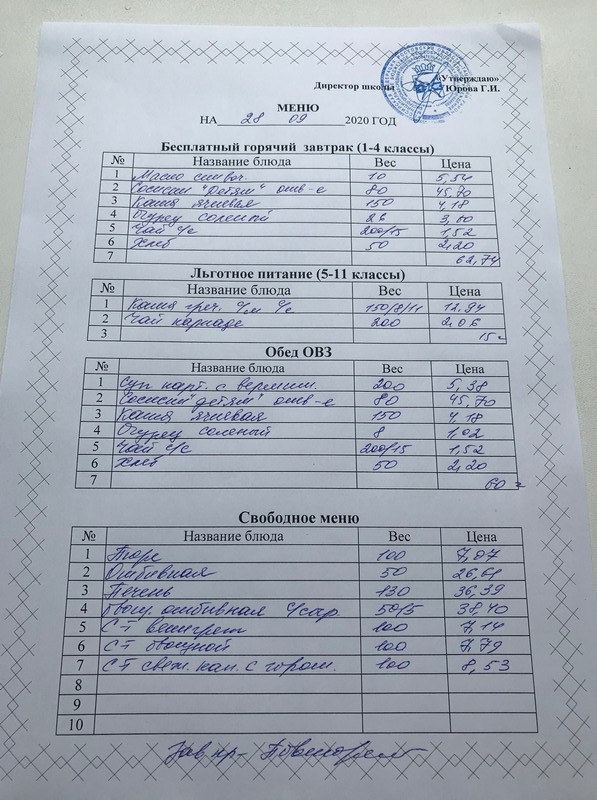 «Утверждаю»
Директор школы Юрова Г.И.
МЕНЮ
НА 28 09 2020 ГОД
Бесплатный горячий завтрак (1-4 классы)
№ Название блюда Вес Цена
1 Масло сливоч. 10 5,54
2 Сосиски "Детям" отв-е 80 45.70
3 Каша ячневая 150 4,18
4 Огурец соленый 26 3,60
5 Чай с/с 200/15 1,52
6 Хлеб 50 2,20
7 62,74
Льготное питание (5-11 классы)
№ Название блюда Вес Цена
1 Каша греч. с/м с/с 150/8/11 12.94
2 Чай каркаде 200 2,06
3 15
Обед ОВЗ
№ Название блюда Вес Цена
1 Суп карт. с вермиш. 200 5,38
2 Сосиски "детям" отв-е 80 45,70
3 Каша ячневая 150 4,18
4 Огурец соленый 8 1,02
5 Чай с/с 200/15 1,52
6 Хлеб 50 2,20
7 60
Свободное меню
№ Название блюда Вес Цена
1 Пюре 100 7,07
2 Отбивная 50 26,61
3 Печень 130 36,39
4 отбивная 50/5 38.40
5 С-т винегрет 100 7,14
6 С-т овощной 100 7,79
7 С-т свеж. кап. с горош. 100 8,53
8
9
10
Зав пр-